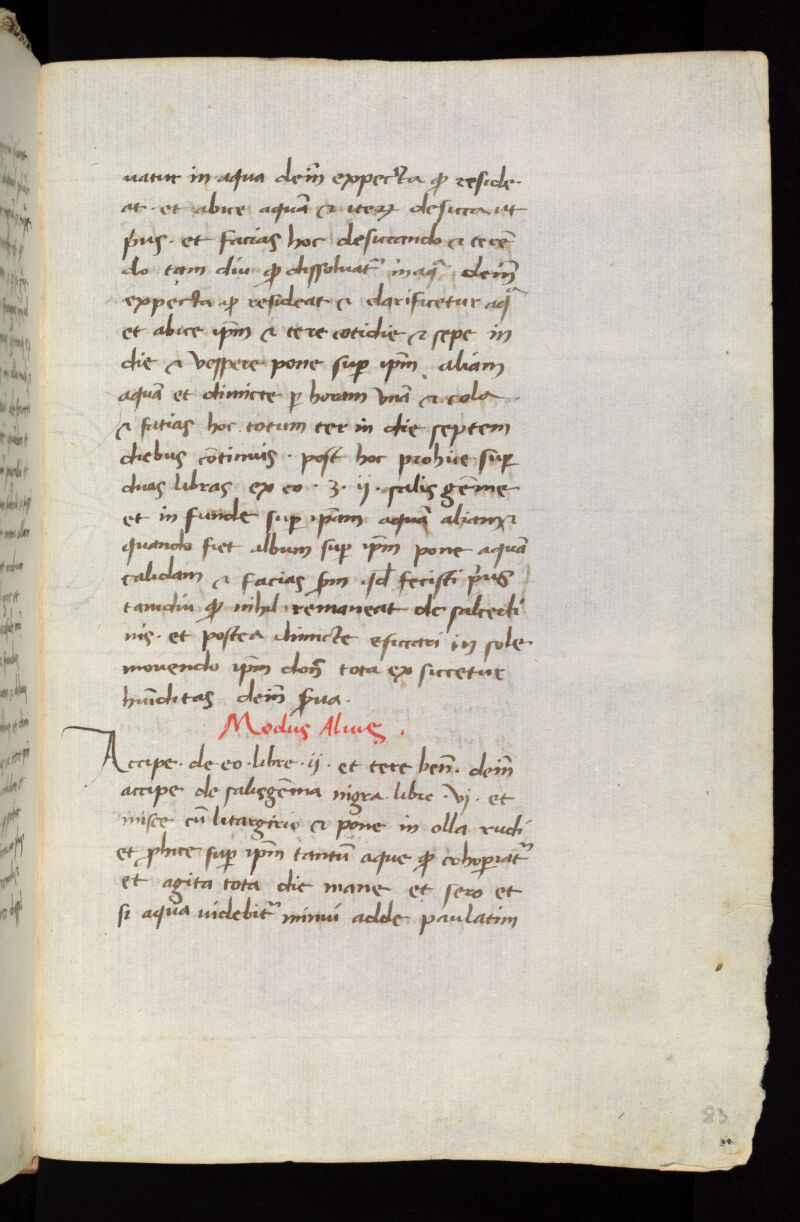 uatur in aqua dein̄ expecta ꝙ reside
at · et abice aquā & iteꝝ desicca ut
p̄us · et facias hoc desiccando & terē
do tam diu ꝙ dissoluat᷑ in aqͣ dein̄
expecta ꝙ resideat & clarificetur aqͣ
et abice ip̄m & tere cotidie & sepe in
die & vespere pone suꝑ ip̄m aliam
aquā et dimicte ꝑ horam vnā & cola
& fatias hoc totum ter in die septem
diebus cōtinuis · post hoc prohice suꝑ
duas libras ex eo · ʒ · ij · salis gēme
et in funde suꝑ ip̄am aquā aliam &
quando fiet album suꝑ ip̄m pone aquā
calidam & facias fecisti p̄us
tamdiu ꝙ nihil remaneat de salcedi
nis · et postea dimicte esiccari in sole
mouendo ip̄m don̄ tota ex siccetur
hūiditas dein̄ ẜua ·
Modus Alius ·
Accipe · de eo · libre · ij · et tere ben̄ · dein̄
accipe de salisgēma nigra libre · vj · et
misce cū litargirio & pone in olla rudi
et ꝓhice suꝑ ip̄m tantū aque ꝙ cohoperiat᷑
et agita tota die mane et sero et
si aqua uidebit᷑ minui adde paulatim
83